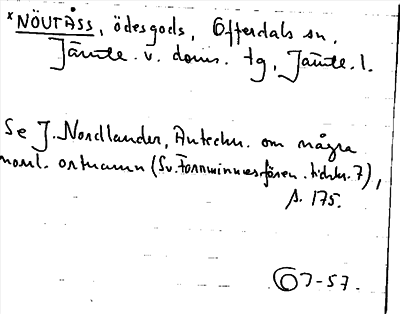 *NÖVTÅSS, ödesgods, Offerdals sn,
Jämtl. v. doms. tg, Jämtl. l.
Se J. Nordlander, Anteckn. om några
norrl. ortnamn (Sv. Fornminnesfören. tidskr. 7),
s. 175.
OJ-57.